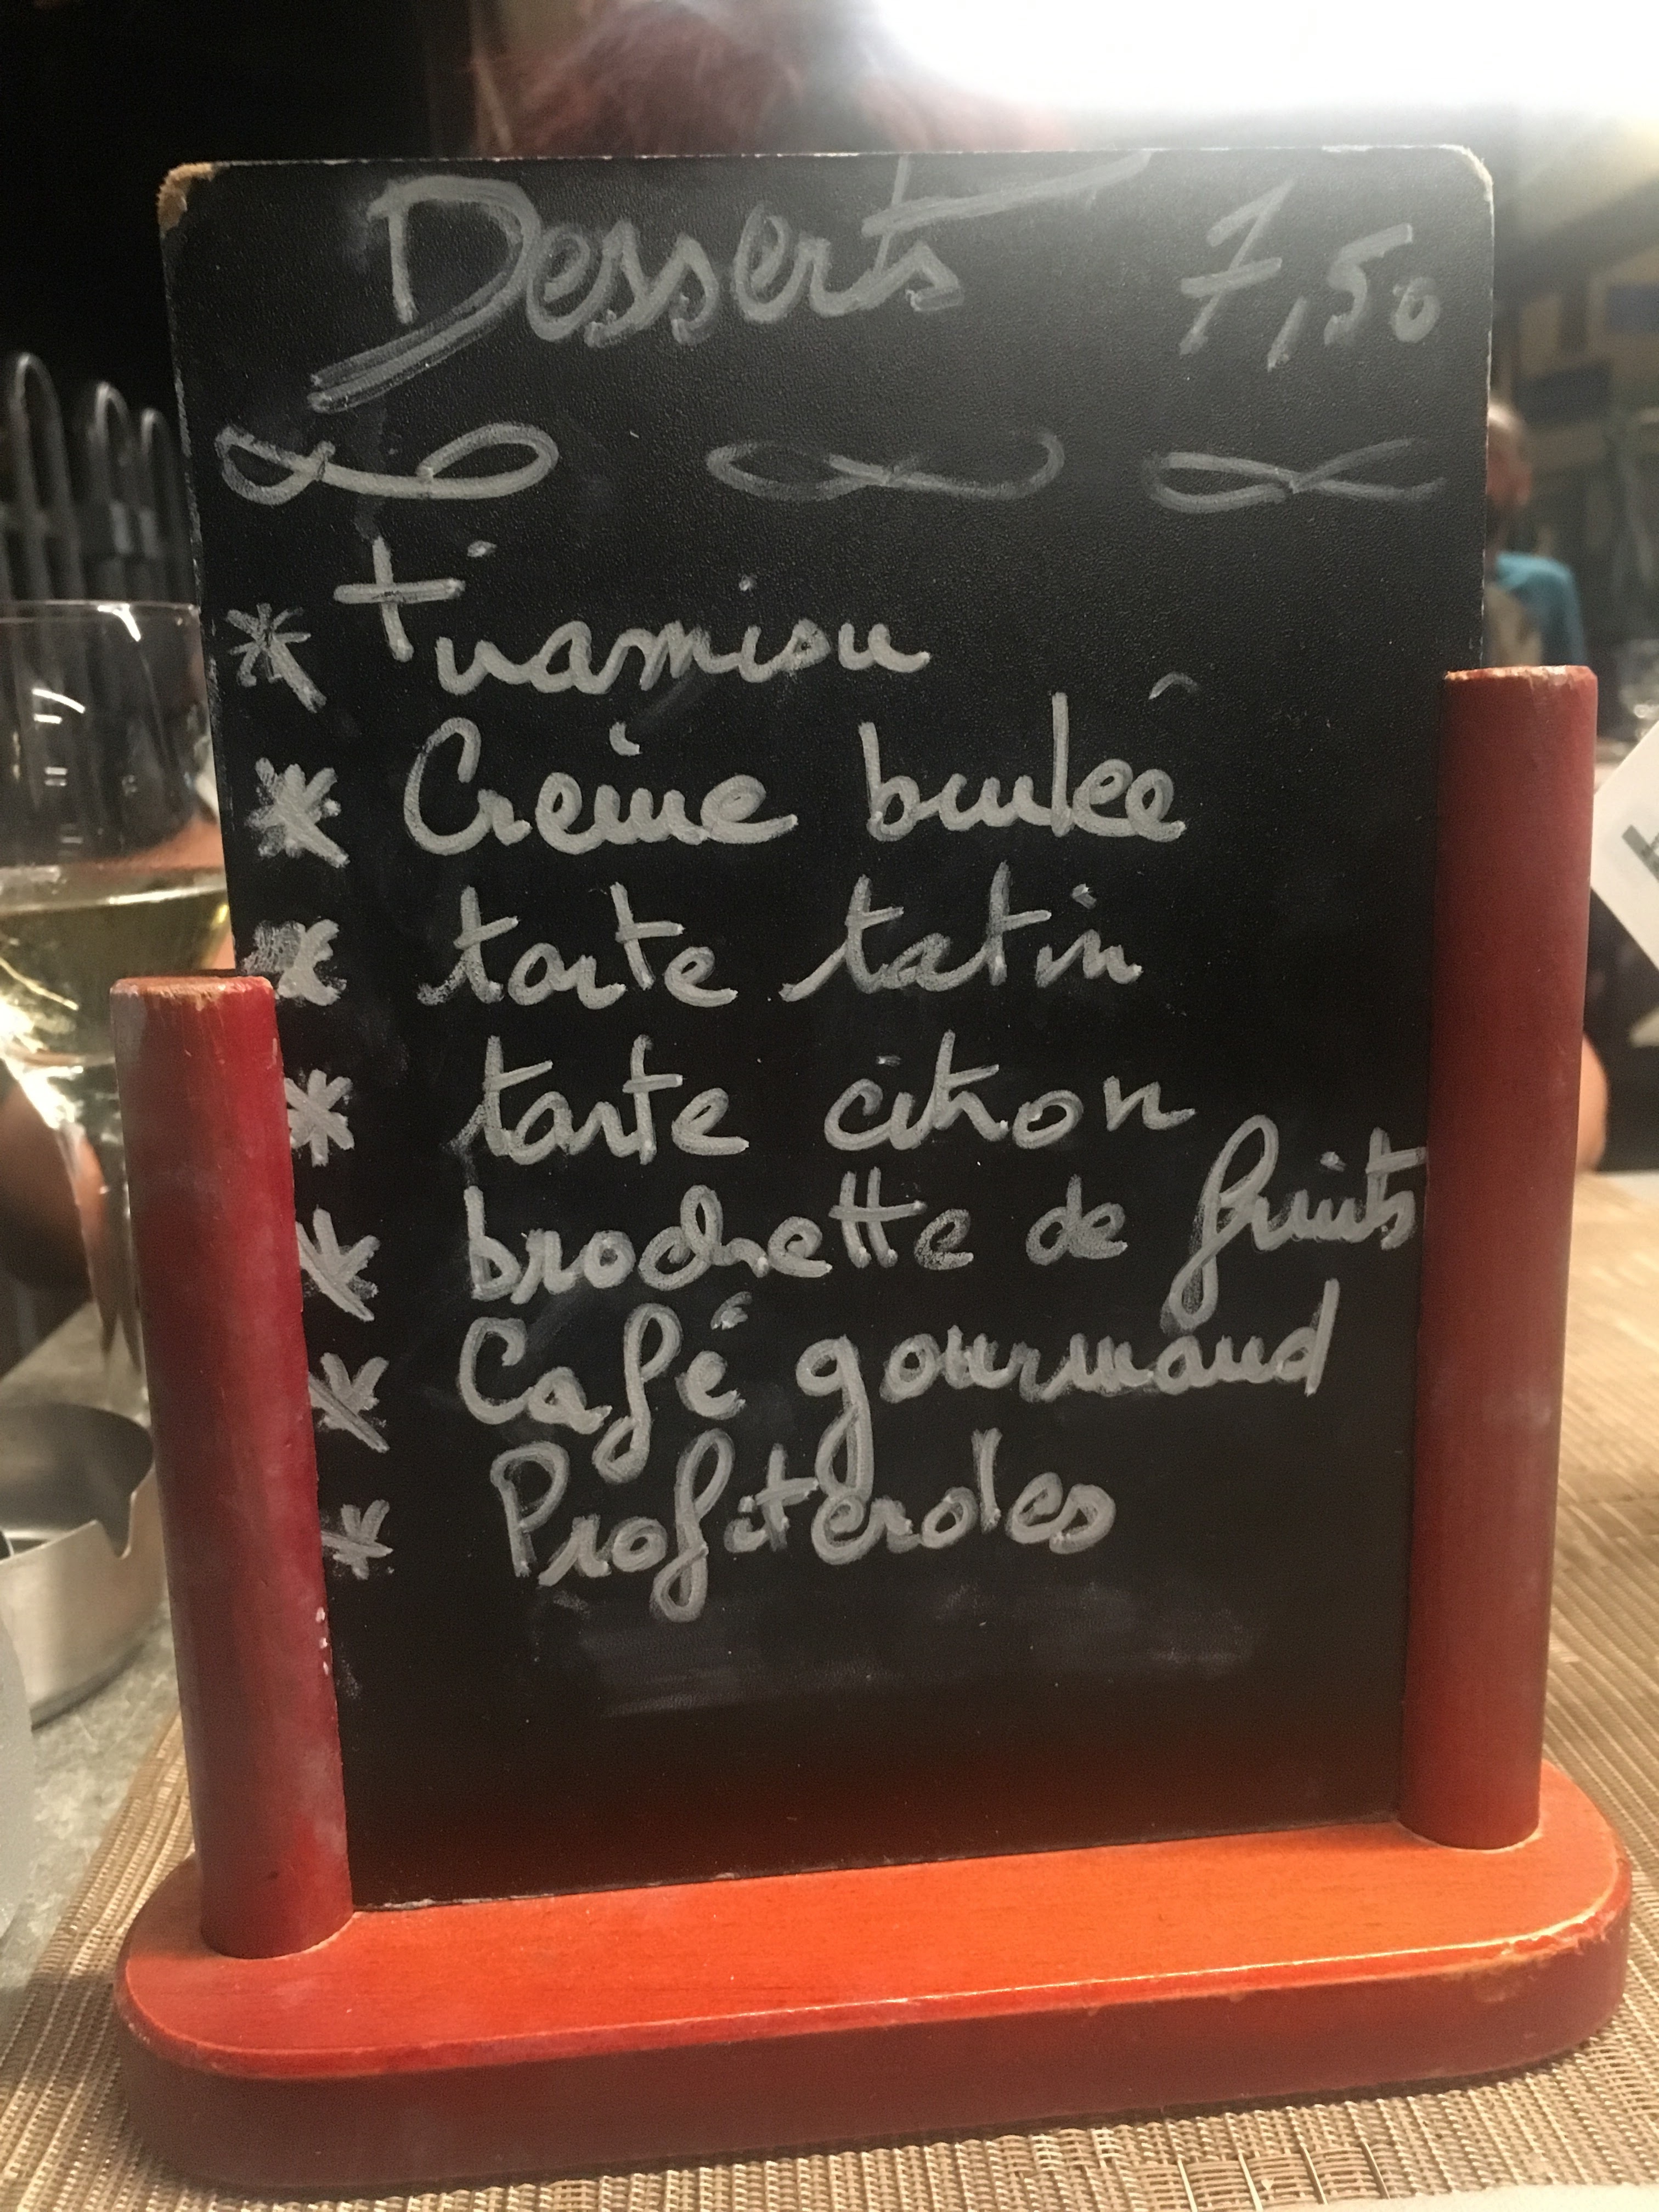 Desserts 7,50
* tiramisu
* Crème brulée
* tarte tatin
* tarte citron
* brochette de fruits
* Café gourmand
* Profiteroles